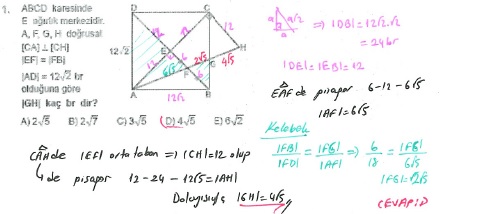 1. ABCD karesinde
E ağırlık merkezidir.
A, F, G, H doğrusal
[CA] ⊥ [CH]
|EF| = |FB|
|AD| = 12√2 br
olduğuna göre
|GH| kaç br dir?
A) 2√5 B) 2√7 C) 3√5 D) 4√5 E) 6√2
D C
12
12√2
12
12
E
6
6√5
F
6
2√5
G
4√5
H
A 12√2 B
a a√2 a
⇒ |DB| = 12√2.√2
= 24 br
|DE| = |EB| = 12
EAF de pisagor 6-12-6√5
|AF| = 6√5
Kelebek
|FB| / |FD| = |FG| / |AF| ⇒ 6 / 18 = |FG| / 6√5
|FG| = 2√5
CEVAP: D
CAH de |EF| orta taban ⇒ |CH| = 12 olup
de pisagor 12-24-12√5 = |AH|
Dolayısıyla |GH| = 4√5